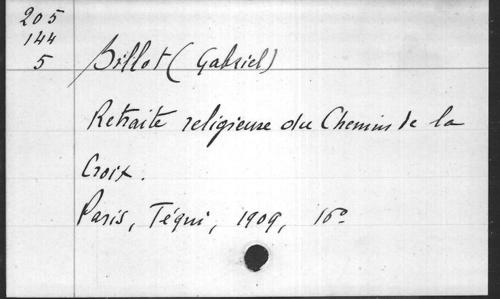 205
144
5
Billot (Gabriel)
Retraite religieuse du Chemin de la
Croix.
Paris, Téqui, 1909, 16º